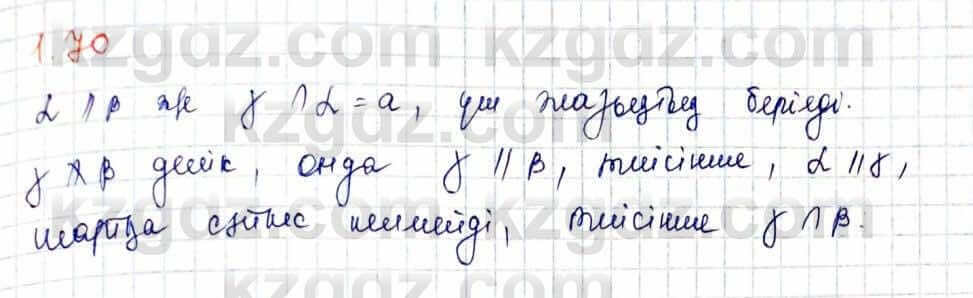 1.70
α ∩ β және γ ∩ α = a, үш жазықтық берілді.
γ ∦ β делік, онда γ || β, тиісінше, α || γ,
шартқа сәйкес келмейді, тиісінше γ ∩ β.
kzgdz.com